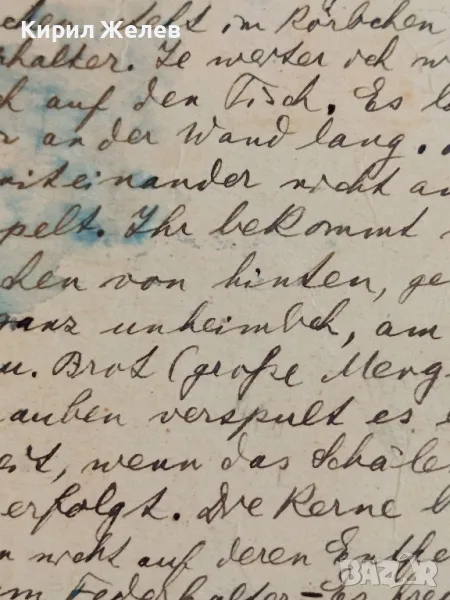 Кирил Желев
chen steht im Körbchen
rhalter. Je weiter ich w
ch auf den Tisch. Es l
r an der Wand lang.
miteinander nicht au
pelt. Ihr bekommt
chen von hinten, ge
ganz unheimlich, am
u. Brot (große Meng
lauben verspult es e
eit, wenn das Schäle
erfolgt. Die Kerne b
n nicht auf deren Entfe
im Federhalter – Es
BAZAR